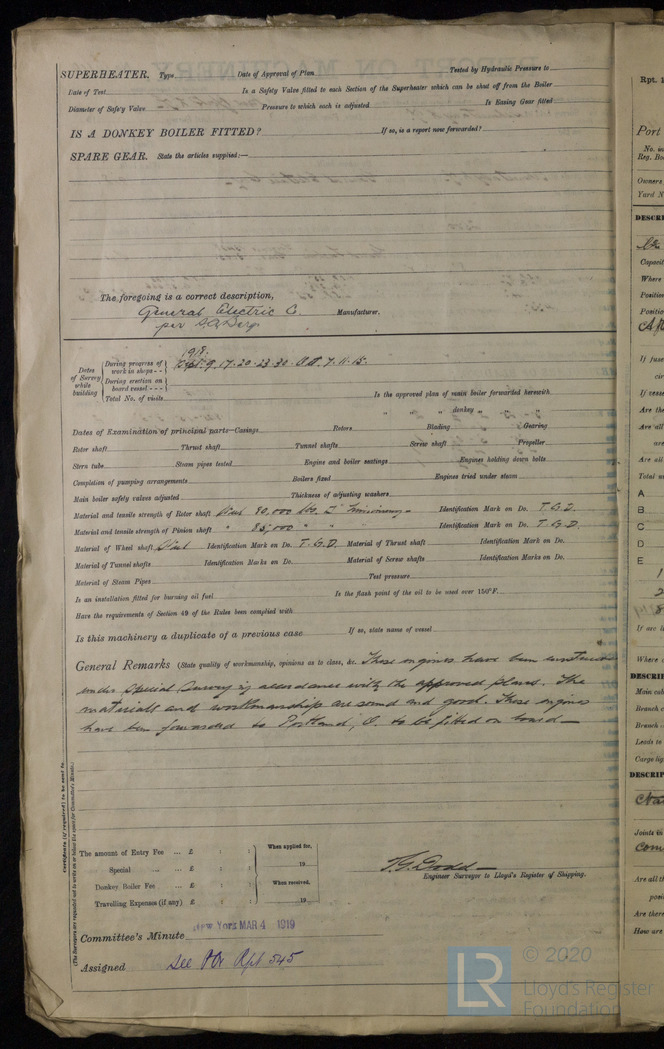 SUPERHEATER. Type Date of Approval of Plan Tested by Hydraulic Pressure to
Date of Test Is a Safety Valve fitted to each Section of the Superheater which can be shut off from the Boiler
Diameter of Safety Valve Pressure to which each is adjusted Is Easing Gear fitted
IS A DONKEY BOILER FITTED? If so, is a report now forwarded?
SPARE GEAR. State the articles supplied:—
The foregoing is a correct description,
General Electric C. Manufacturer.
per
1918.
Dates of Survey while building
During progress of work in shops - - Sept. 9. 17. 20. 23. 30. Oct. 7. 11. 15.
During erection on board vessel - - -
Total No. of visits
Is the approved plan of main boiler forwarded herewith
" " donkey " " "
Dates of Examination of principal parts—Casings Rotors Blading Gearing
Rotor shaft Thrust shaft Tunnel shafts Screw shaft Propeller
Stern tube Steam pipes tested Engine and boiler seatings Engines holding down bolts
Completion of pumping arrangements Boilers fixed Engines tried under steam
Main boiler safety valves adjusted Thickness of adjusting washers
Material and tensile strength of Rotor shaft Steel 80,000 lbs. Identification Mark on Do. T.G.D.
Material and tensile strength of Pinion shaft " 85,000 " " Identification Mark on Do. T.G.D
Material of Wheel shaft Steel Identification Mark on Do. T.G.D. Material of Thrust shaft Identification Mark on Do.
Material of Tunnel shafts Identification Marks on Do. Material of Screw shafts Identification Marks on Do.
Material of Steam Pipes Test pressure
Is an installation fitted for burning oil fuel Is the flash point of the oil to be used over 150°F.
Have the requirements of Section 49 of the Rules been complied with
Is this machinery a duplicate of a previous case If so, state name of vessel
General Remarks (State quality of workmanship, opinions as to class, &c. These engines have been constructed
under Special Survey in accordance with the approved plans. The
materials and workmanship are sound and good. These engines
have been forwarded to Portland, O. to be fitted on board—
Certificate (if required) to be sent to
(The Surveyors are requested not to write on or below the space for Committee's Minute.)
The amount of Entry Fee ... £ : : When applied for,
Special ... £ : : 19
Donkey Boiler Fee ... £ : : When received,
Travelling Expenses (if any) £ : : 19
T.G. Dodd
Engineer Surveyor to Lloyd's Register of Shipping.
Committee's Minute New York MAR 4 1919
Assigned See Rpt 545
Rpt.
Port
No. in
Reg. Bo
Owners
Yard N
DESCRI
Capacit
Where
Position
Positio
If fuse
cir
If vesse
Are the
Are all
are
Are all
Total n
A
B
C
D
E
1
2
If are l
Where
DESCRIP
Main cab
Branch c
Branch
Leads to
Cargo lig
DESCRIP
Joints in
com
Are all t
posi
Are there
How are
LR
© 2020
Lloyd's Register
Foundation